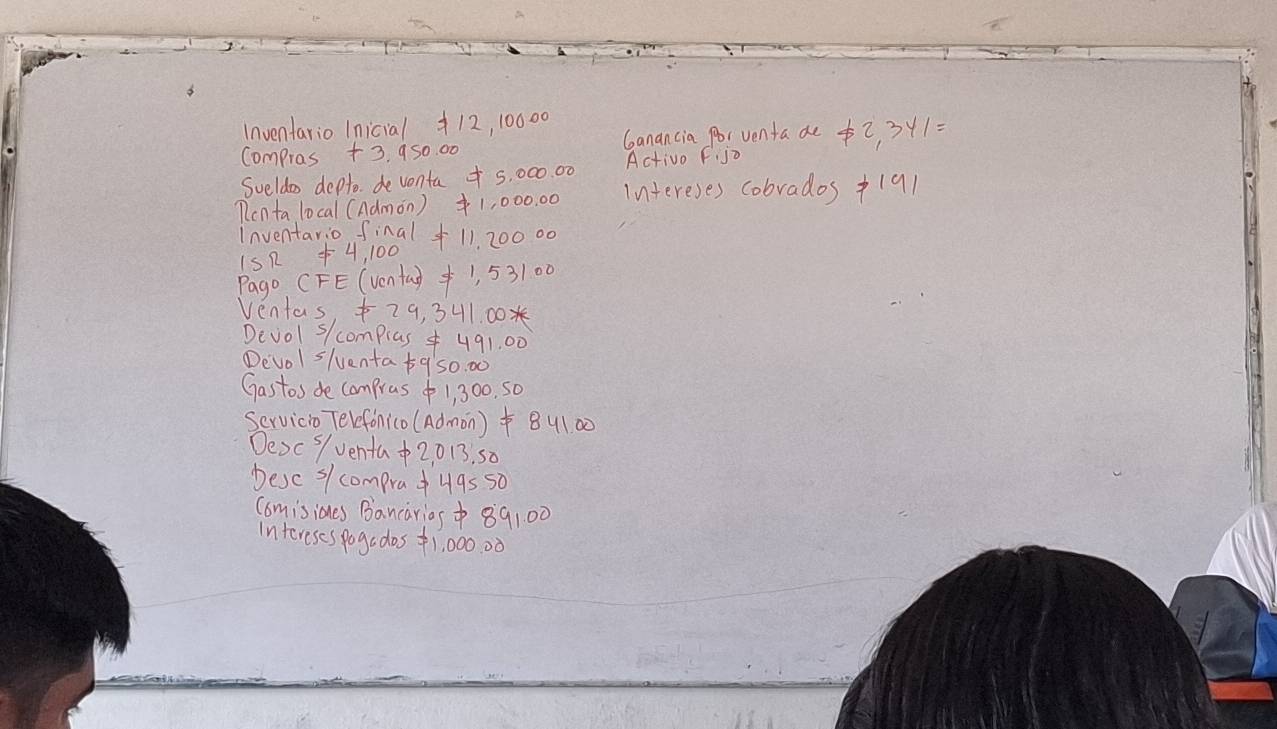 Inventario Inicial $12,100.00
Compras $3.950.00
Sueldos depto. de venta $5.000.00
Renta local (Admón) $1,000.00
Inventario final $11.200.00
ISR $4,100
Pago CFE (ventas) $1,531.00
Ventas $29,341.00*
Devol s/compras $491.00
Devol s/venta $950.00
Gastos de compras $1,300.50
Servicio Telefónico (Admón) $841.00
Desc s/venta $2,013.50
Desc s/compra $495.50
Comisiones Bancarias $891.00
Intereses pagados $1.000.00
Ganancia por venta de $2,341=
Activo Fijo
Intereses cobrados $191